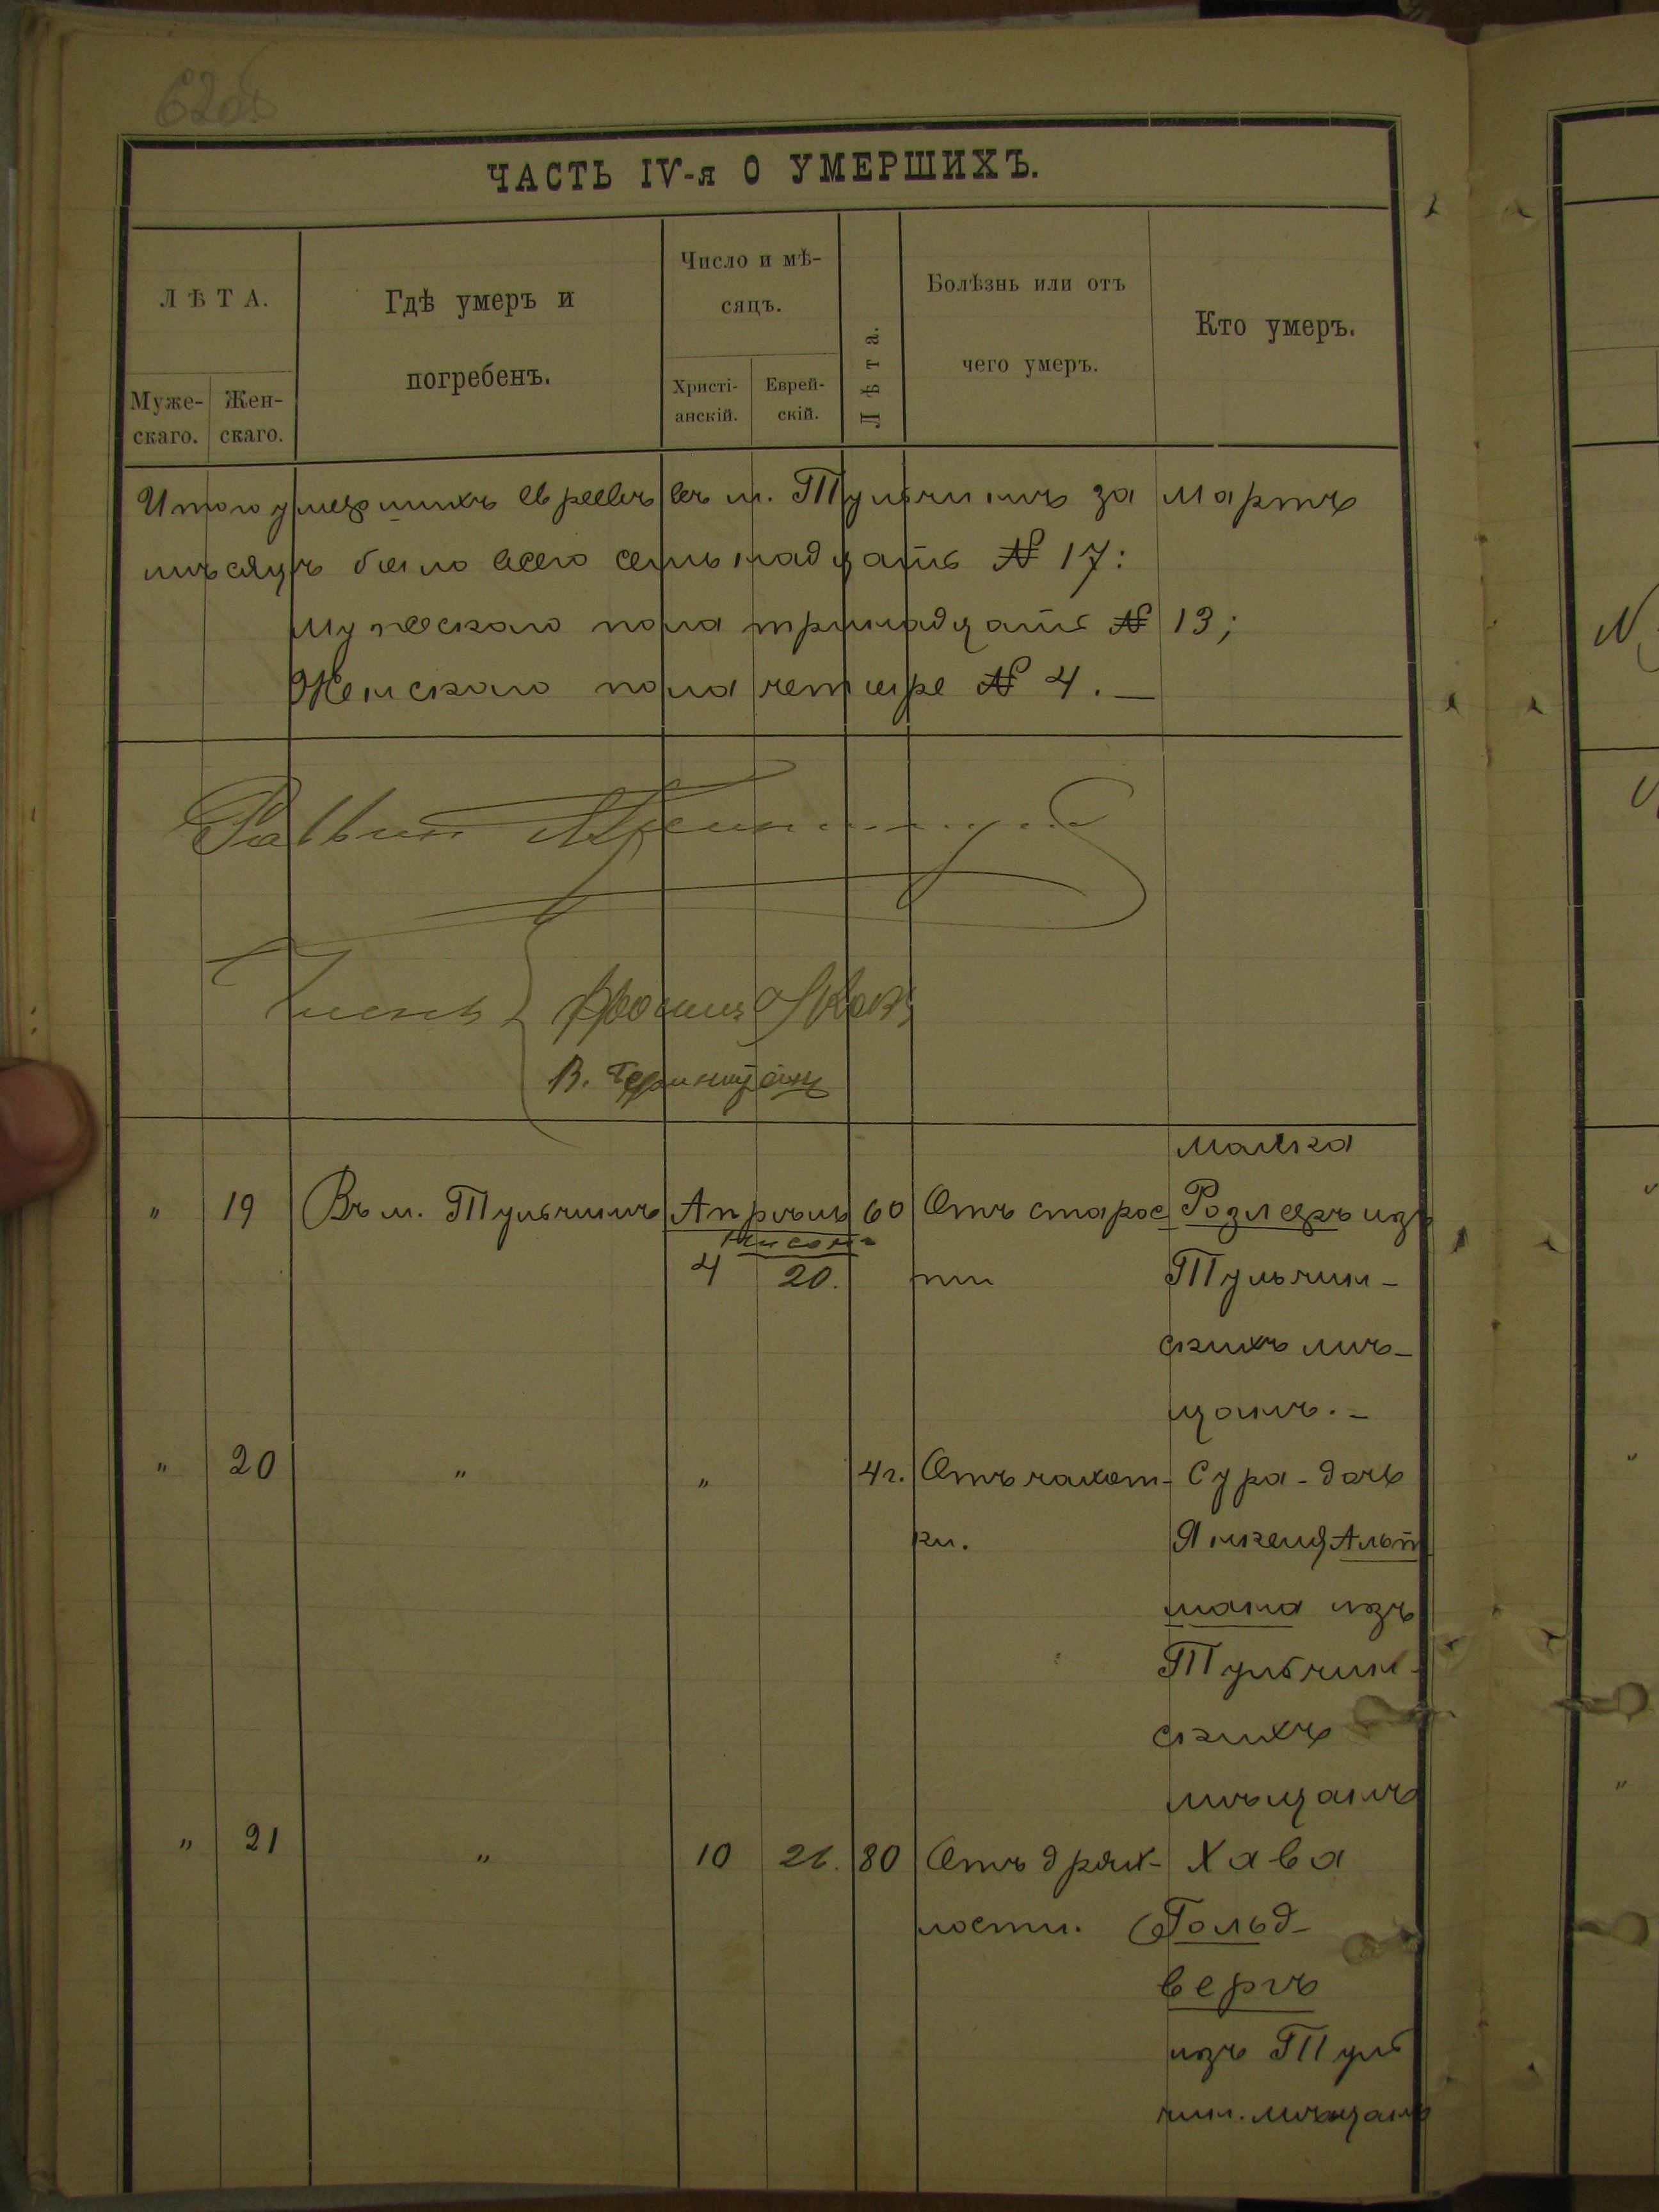 62об
ЧАСТЬ IV-я О УМЕРШИХЪ.
ЛѢТА.
Муже-
скаго.
Жен-
скаго.
Гдѣ умеръ и
погребенъ.
Число и мѣ-
сяцъ.
Христі-
анскій.
Еврей-
скій.
Лѣта.
Болѣзнь или отъ
чего умеръ.
Кто умеръ.
Итого умершихъ евреевъ въ м. Тульчинѣ за мартъ
мѣсяцъ было всего семьнадцать № 17:
Мужескаго пола тринадцать № 13;
Женскаго пола четыре № 4. —
Раввин
Члены
В.
" 19 Въ м. Тульчинѣ Апрѣль 60 Отъ старос Малка
Розлеръ изъ
Нисонъ
4 20. ти Тульчин-
скихъ мѣ-
щанъ. -
" 20 " " 4 г. Отъ чахот- Сура - дочь
ки. Янкеля Альт
мана изъ
Тульчин-
скихъ
мѣщанъ
" 21 " 10 26. 80 Отъ дрях- Хава
лости. Гольд-
бергъ
изъ Туль
чин. мѣщанъ